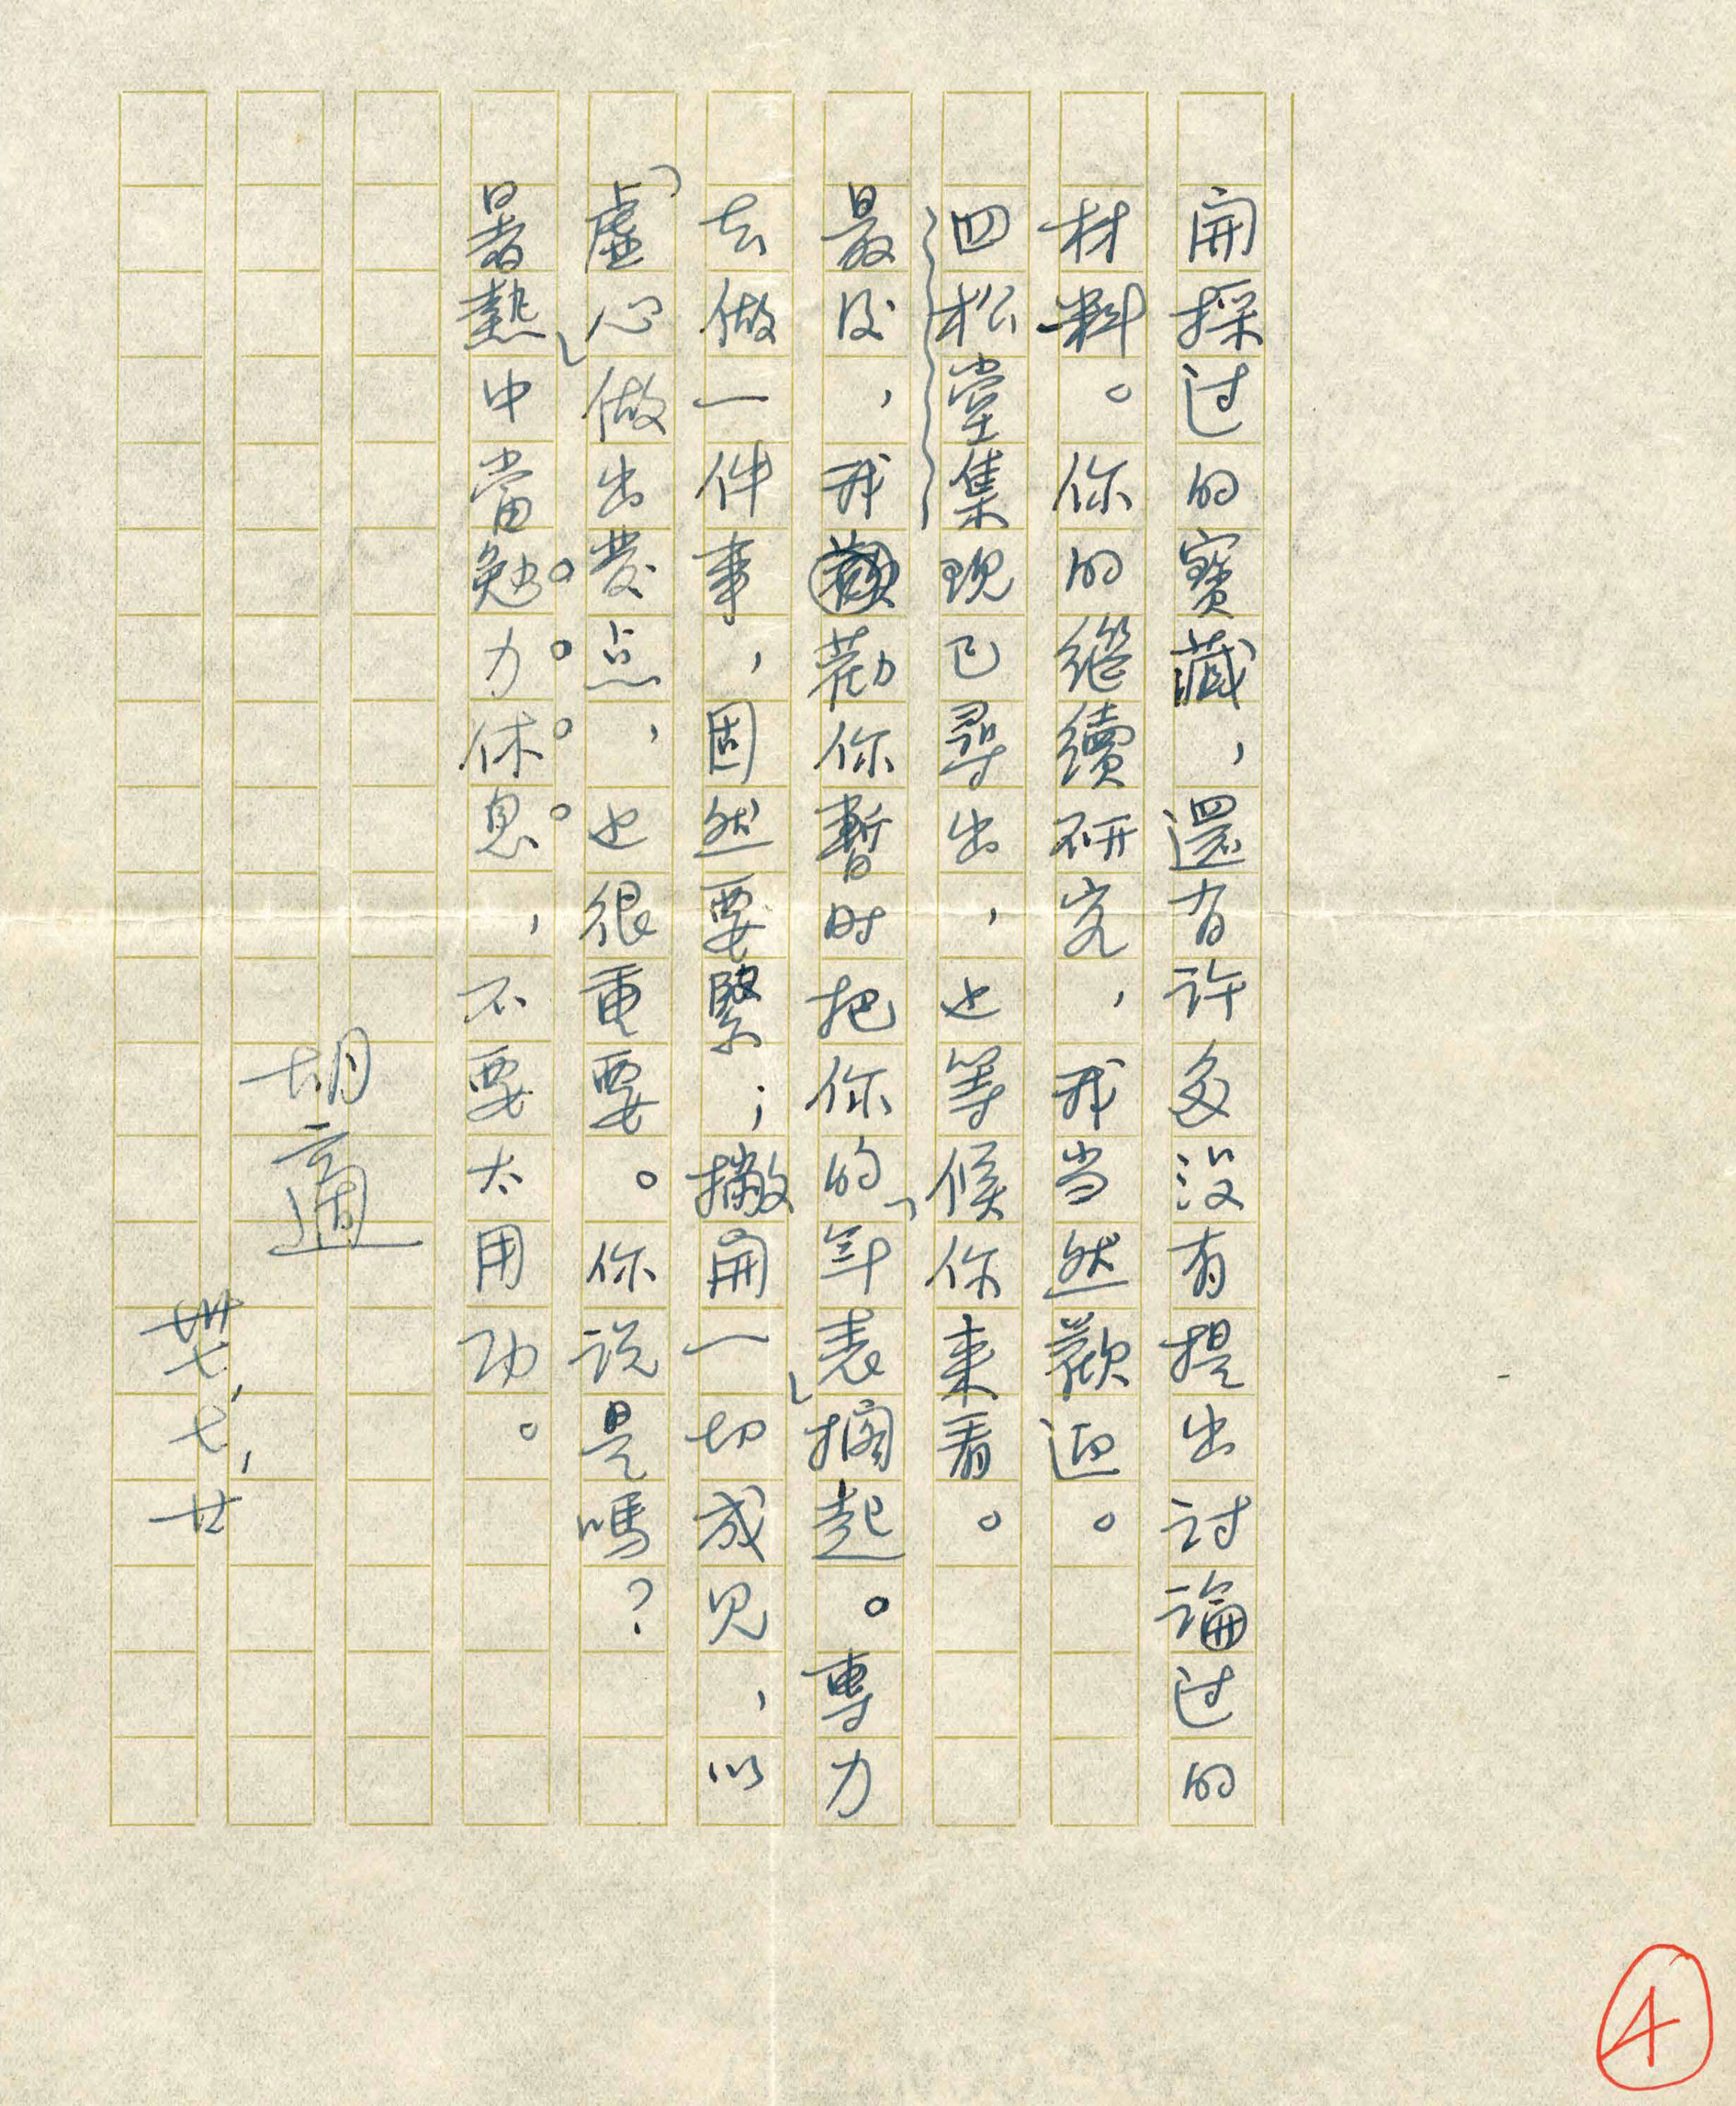 開採过的寳藏，還有許多没有提出討論过的
材料。你的繼續研究，我当然歡迎。
四松堂集现已尋出，也等候你来看。
最后，我勸你暫时把你的「年表」擱起。專力
去做一件事，固然要緊；撇開一切成见，以
「虛心」做出發点，也很重要。你说是嗎？
暑熱中當勉力休息，不要太用功。
胡適
卅七，七，廿
④